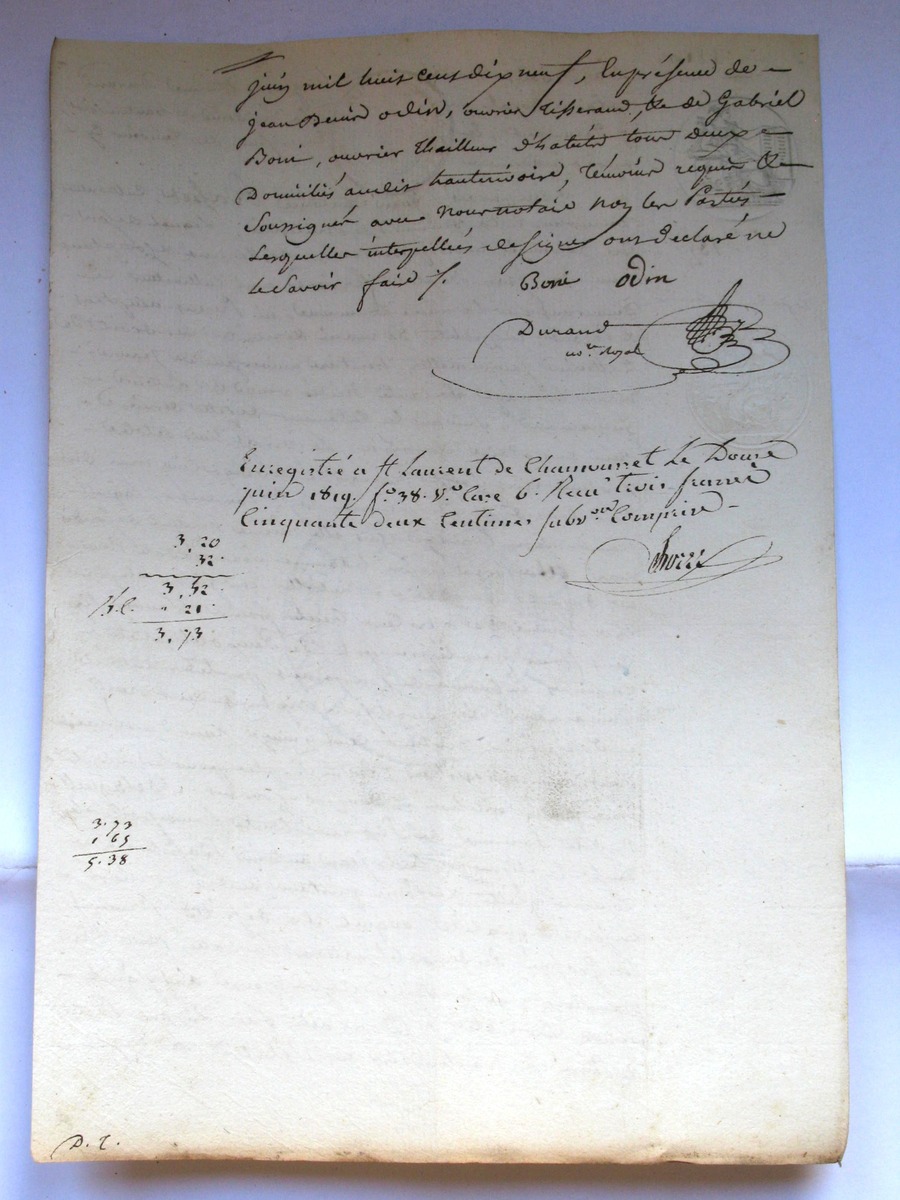 juin mil huit cent dix neuf, En présence de
jean Denis odin, ouvrier tisserand, & de Gabriel
Boni, ouvrier thailleur d'habits tous deux
Domiciliés audit hauterivoire, témoins requis &
Soussignés avec Nous notaire non les Parties
Lesquelles interpellées de signer ont declaré ne
le Savoir faire ./.
Boni odin
Durand
no.re Royal
Enregistré a St Laurent de Chamousset Le Douze
juin 1819. f.o 38. v.o Case 6. Reçu trois francs
Cinquante deux Centimes subv.on Comprise
3,20
32
3,52
21
3,73
3.73
1 65
5.38
D. T.